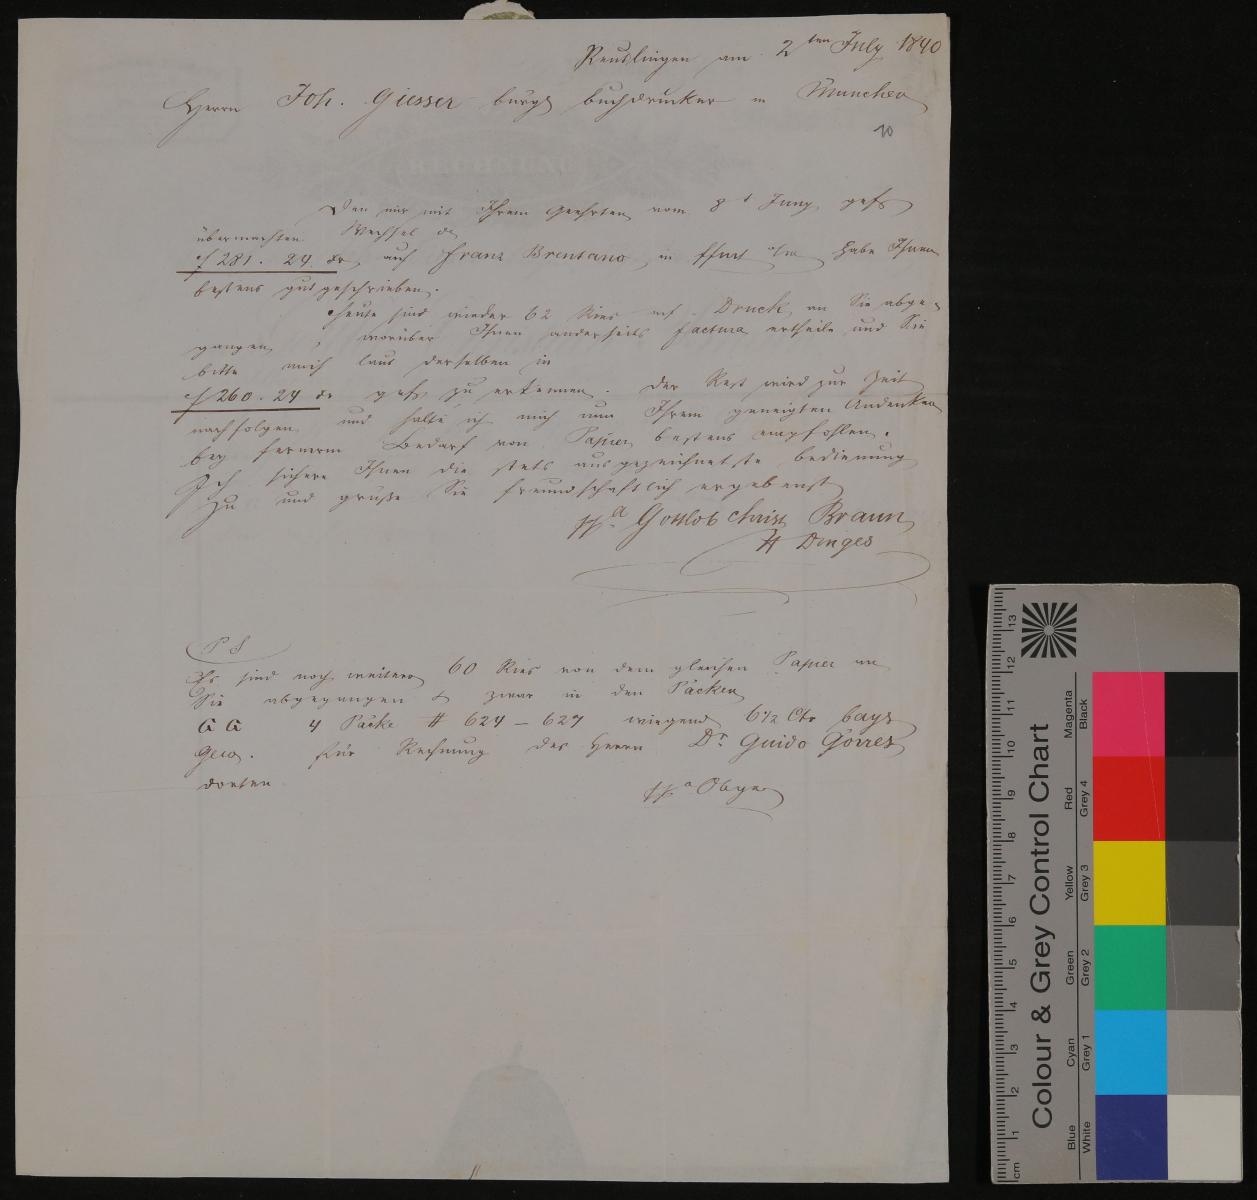 Reutlingen am 2ten July 1840
Herrn Joh. Giesser bürgl buchdrucker in München
10
Den mir mit Ihrem Geehrten vom 8t Juny
übermachten Wechsel
f 281. 24 Xr auf Franz Brentano in Ffurt a/m habe Ihnen
bestens gutgeschrieben.
Heute sind wieder 62 Ries Druck an Sie abge-
gangen, worüber Ihnen anderseits factura ertheile und Sie
bitte mich laut derselben in
f 260. 24 Xr zu erkennen. Der Rest wird zur Zeit
nachfolgen und halte ich mich nun Ihrem geneigten Andenken
bey fernerm Bedarf von Papier bestens empfohlen.
Ich sichere Ihnen die stets ausgezeichnetste bedienung
zu und grüße Sie freundschaftlich ergebenst
ppa Gottlob Christ Braun
H Dinges
P S
Es sind noch weitere 60 Ries von dem gleichen Papier an
Sie abgegangen & zwar in den Päcken
GG 4 Päcke # 624 – 627 wiegend 6½ Ctr bayr
Gew. für Rechnung des Herrn Dr Guido Görres
dorten
ppa Obige
RECHNUNG
Colour & Grey Control Chart
Blue Cyan Green Yellow Red Magenta
White Grey 1 Grey 2 Grey 3 Grey 4 Black
cm 1 2 3 4 5 6 7 8 9 10 11 12 13